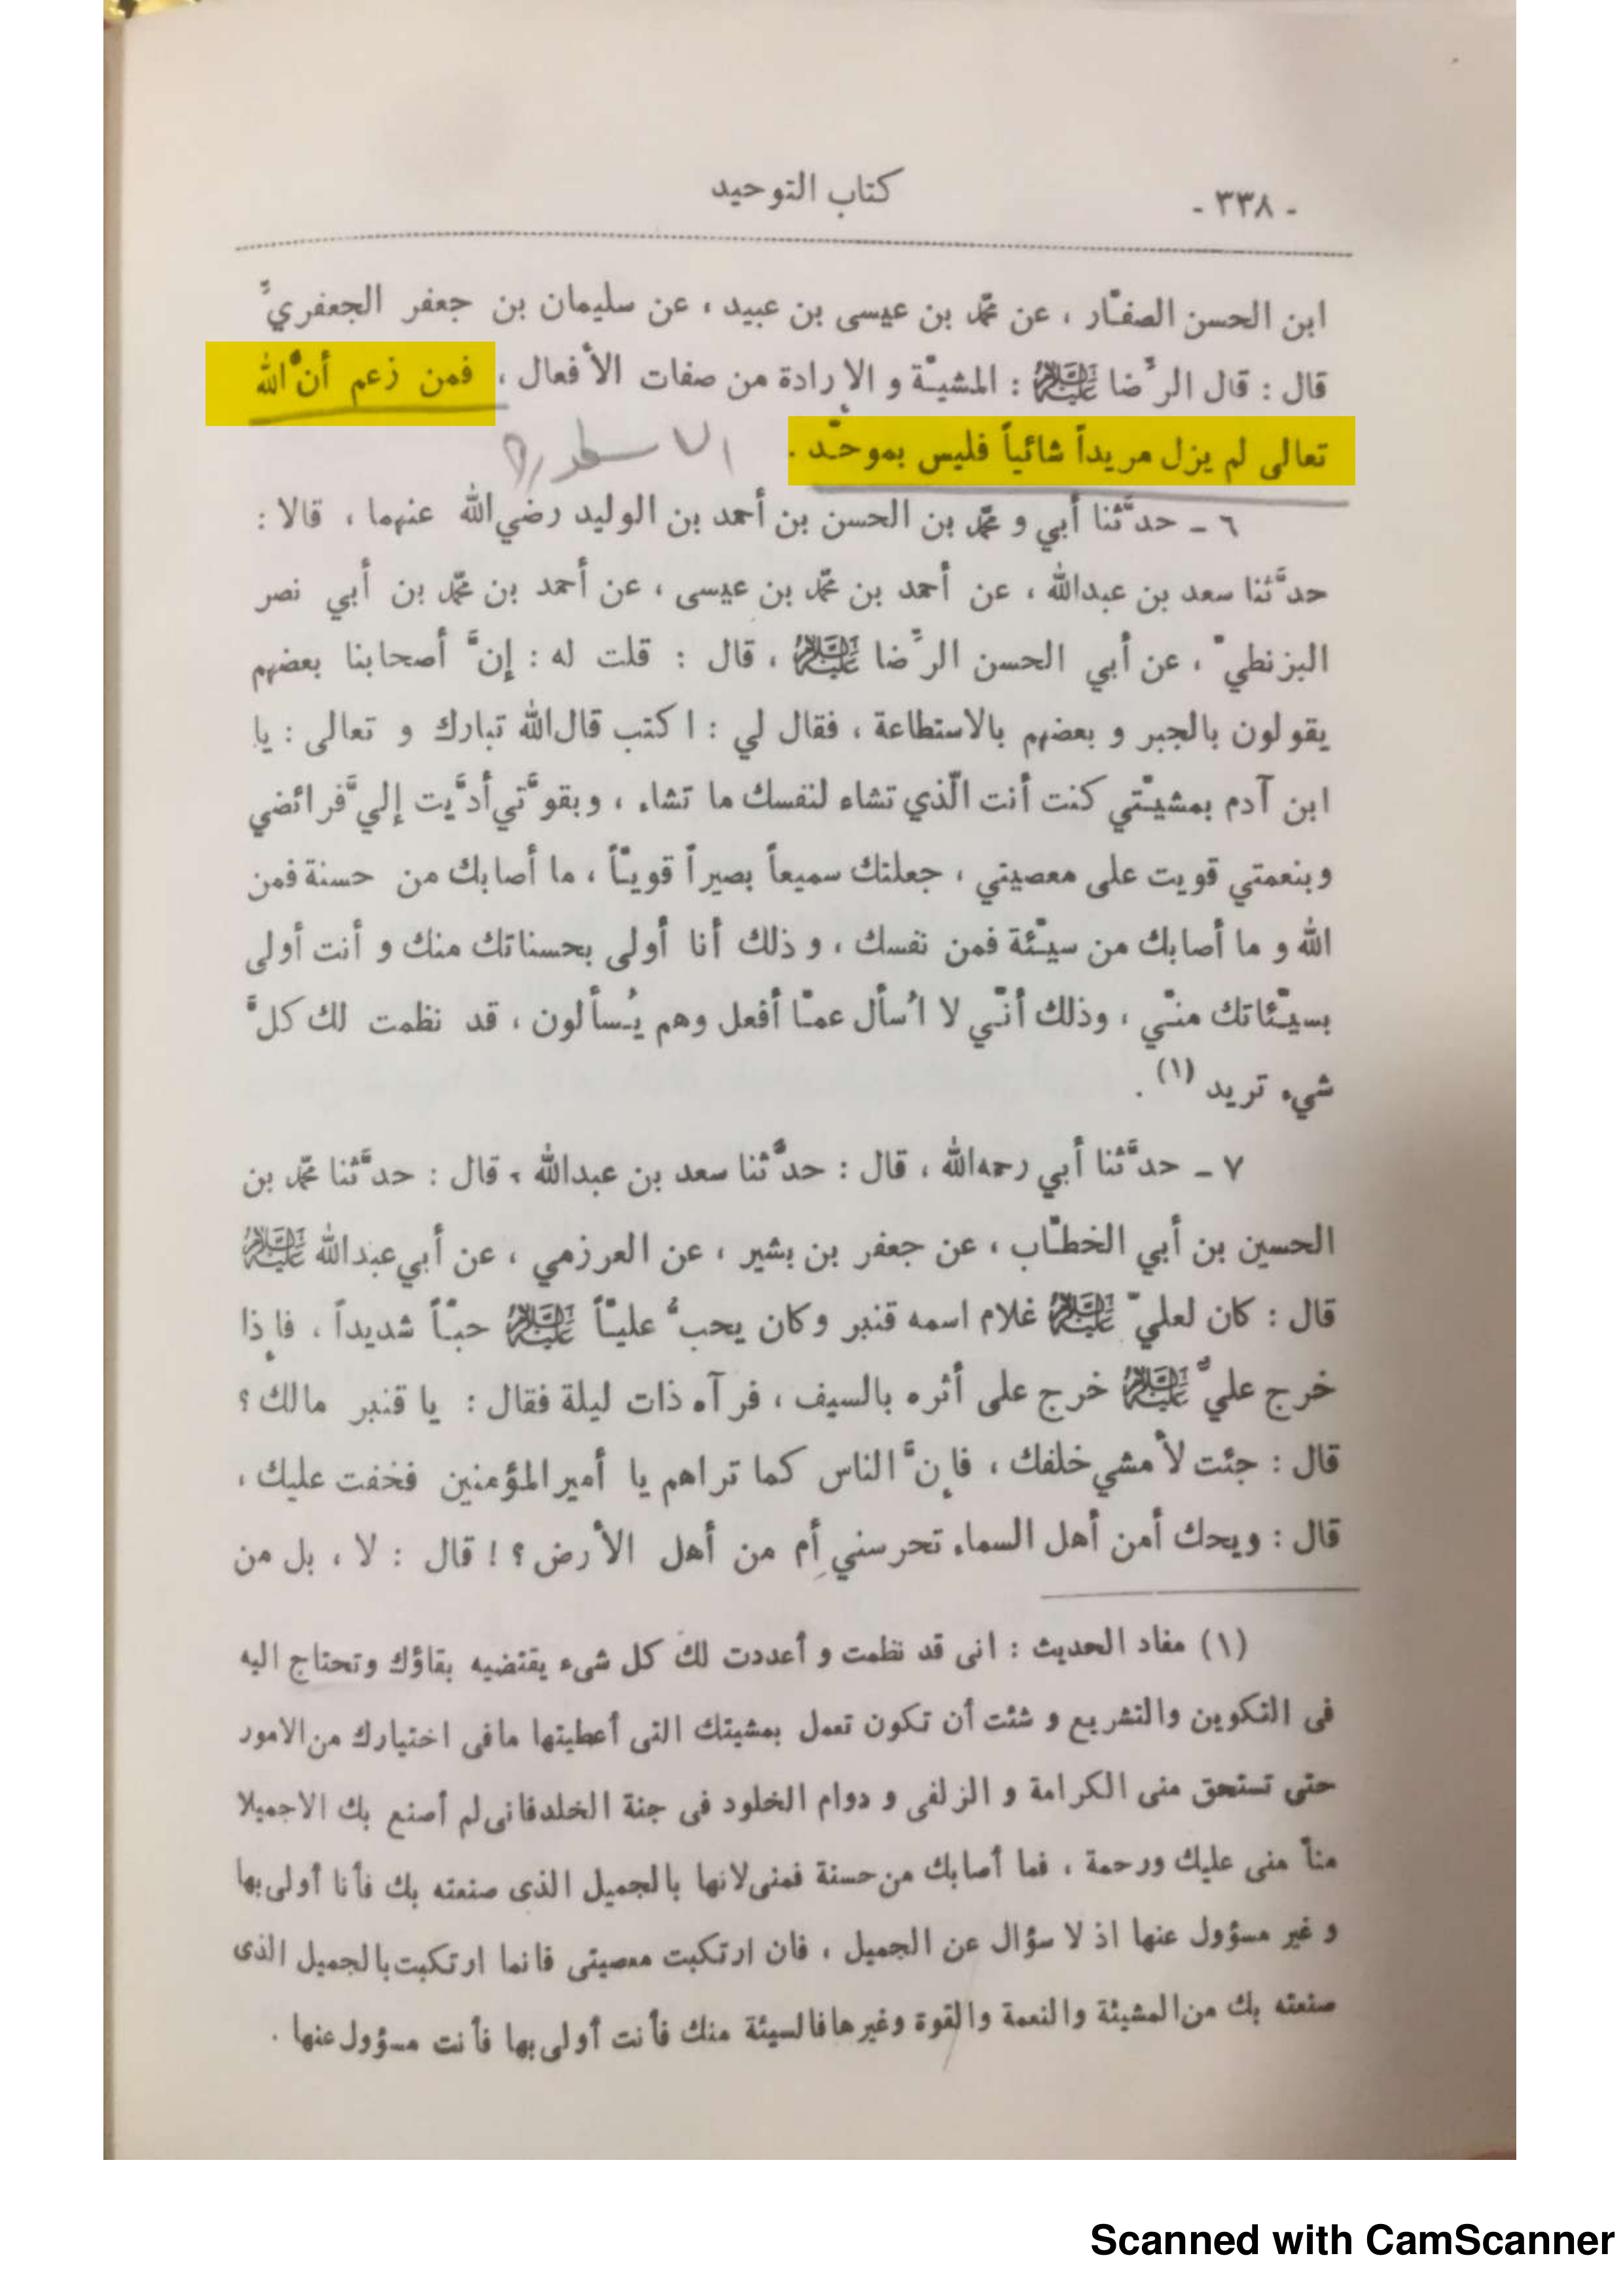 - ٣٣٨ -
كتاب التوحيد
ابن الحسن الصفّار ، عن محمّد بن عيسى بن عبيد ، عن سليمان بن جعفر الجعفريّ
قال : قال الرِّضا عَلَيْهِ السَّلَام : المشيّة و الإرادة من صفات الأفعال ، فمن زعم أنَّ الله
تعالى لم يزل مريداً شائياً فليس بموحّد .
٦ ـ حدَّثنا أبي و محمّد بن الحسن بن أحمد بن الوليد رضي الله عنهما ، قالا :
حدَّثنا سعد بن عبدالله ، عن أحمد بن محمّد بن عيسى ، عن أحمد بن محمّد بن أبي نصر
البزنطيّ ، عن أبي الحسن الرِّضا عَلَيْهِ السَّلَام ، قال : قلت له : إنَّ أصحابنا بعضهم
يقولون بالجبر و بعضهم بالاستطاعة ، فقال لي : اكتب قال الله تبارك و تعالى : يا
ابن آدم بمشيّتي كنت أنت الّذي تشاء لنفسك ما تشاء ، وبقوَّتي أدَّيت إليَّ فرائضي
وبنعمتي قويت على معصيتي ، جعلتك سميعاً بصيراً قويّاً ، ما أصابك من حسنة فمن
الله و ما أصابك من سيّئة فمن نفسك ، و ذلك أنا أولى بحسناتك منك و أنت أولى
بسيّئاتك منّي ، وذلك أنّي لا اُسأل عمّا أفعل وهم يُسألون ، قد نظمت لك كلَّ
شيء تريد (١) .
٧ ـ حدَّثنا أبي رحمه الله ، قال : حدَّثنا سعد بن عبدالله ، قال : حدَّثنا محمّد بن
الحسين بن أبي الخطّاب ، عن جعفر بن بشير ، عن العرزمي ، عن أبي عبدالله عَلَيْهِ السَّلَام
قال : كان لعليّ عَلَيْهِ السَّلَام غلام اسمه قنبر وكان يحبُّ عليّاً عَلَيْهِ السَّلَام حبّاً شديداً ، فإذا
خرج عليٌّ عَلَيْهِ السَّلَام خرج على أثره بالسيف ، فرآه ذات ليلة فقال : يا قنبر مالك ؟
قال : جئت لأمشي خلفك ، فإنَّ الناس كما تراهم يا أمير المؤمنين فخفت عليك ،
قال : ويحك أمن أهل السماء تحرسني أم من أهل الأرض ؟ ! قال : لا ، بل من
(١) مفاد الحديث : انى قد نظمت و أعددت لك كل شىء يقتضيه بقاؤك وتحتاج اليه
فى التكوين والتشريع و شئت أن تكون تعمل بمشيتك التى أعطيتها مافى اختيارك من الامور
حتى تستحق منى الكرامة و الزلفى و دوام الخلود فى جنة الخلد فانى لم أصنع بك الاجميلا
منا منى عليك ورحمة ، فما أصابك من حسنة فمنى لانها بالجميل الذى صنعته بك فأنا أولى بها
و غير مسؤول عنها اذ لا سؤال عن الجميل ، فان ارتكبت معصيتى فانما ارتكبت بالجميل الذى
صنعته بك من المشيئة والنعمة والقوة وغيرها فالسيئة منك فأنت أولى بها فأنت مسؤول عنها .
Scanned with CamScanner